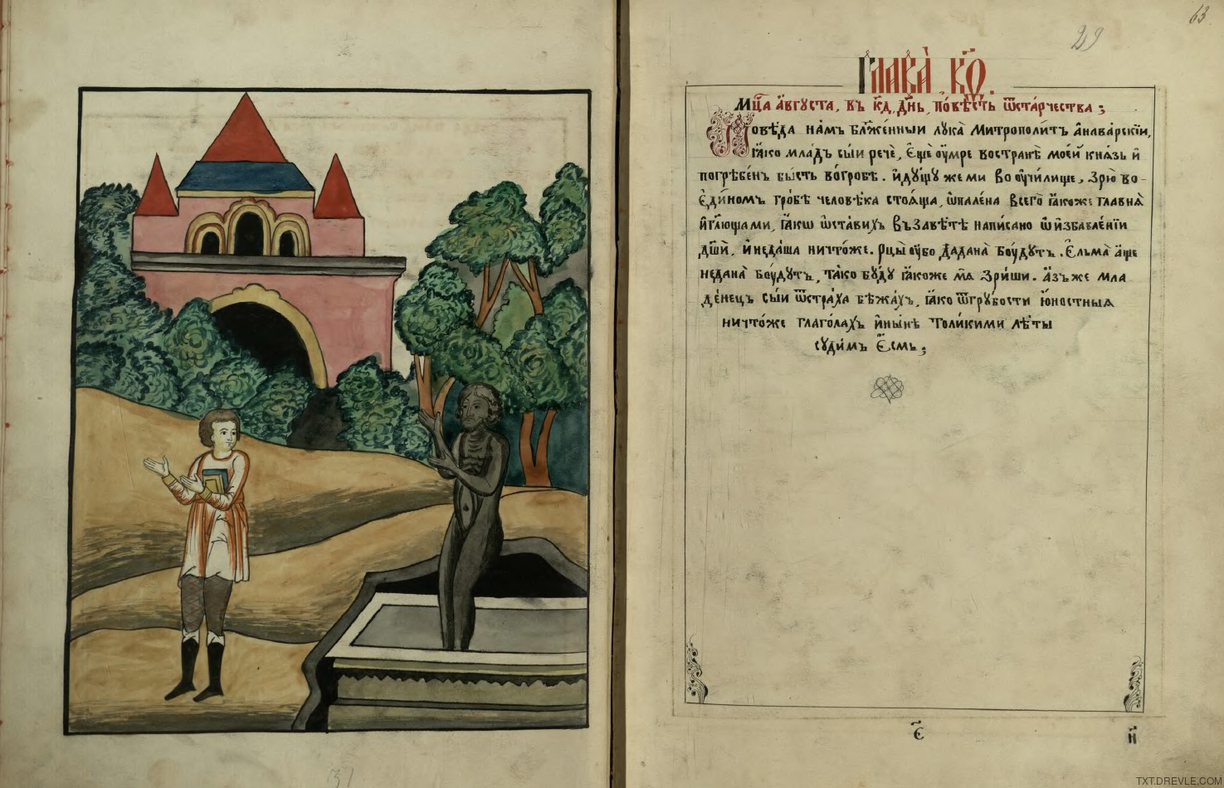 63
29
Глава̀ к҃ѳ.
Мц҃а а҆́вгꙋста, въ к҃д, дн҃ь, по́вѣсть ѿста́рчества ;
Повѣ́да на́мъ бл҃же́нныи лꙋка̀ Митрополи́тъ А҆нава́рскїи,
ꙗ҆́ко мла́дъ сы́и речѐ, Є҆щѐ оу҆́мре востранѣ̀ мое́й кн҃зь и҆
погрѣбе́нъ бы́сть во́гробѣ. и҆дꙋ́щꙋ же ми во оу҆чи́лище, Зрю̀ во-
є҆ди́номъ гро́бѣ человѣ́ка стоѧ́ща, ѡ҆пале́на всего̀ ꙗ҆́коже главнѧ̀
и҆ гл҃юща ми, ꙗ҆́кѡ ѡ҆ста́вихъ въ завѣ́тѣ напи́сано ѡ҆ и҆збавле́нїи
дш҃и, и҆ неда́ша ничто́же. Рцы̀ оу҆́бо да дана̀ бꙋ́дꙋтъ. Є҆льма̀ а҆́ще
недана̀ бꙋ́дꙋтъ, та́ко бꙋ́дꙋ ꙗ҆́коже мѧ̀ Зри́ши. А҆́зъ же мла
де́нецъ сы́и ѿстра́ха бѣжа́хъ, ꙗ҆́ко ѿгрꙋ́бости ю҆́ностныѧ
ничто́же глаго́лахъ и҆ ны́нѣ Толи́кими лѣ́ты
сꙋди́мъ Є҆́смь ;
є҃
и҃
TXT.DREVLE.COM